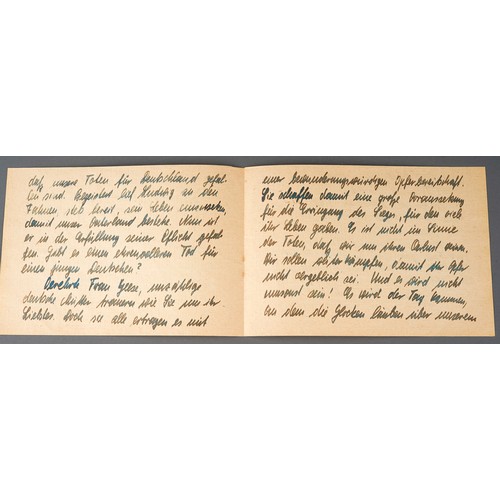 daß unsere Toten für Deutschland gefal-
len sind. Begeistert lief Hendrig an den
Fahnen, stets bereit, sein Leben einzusetzen,
damit unser Vaterland bestehe. Nun ist
er in der Erfüllung seiner Pflicht gefal-
len. Gibt es einen ehrenvolleren Tod für
einen jungen Deutschen?
Verehrte Frau Geese, unzählige
deutsche Mütter trauern wie Sie um ihr
Liebstes. Doch sie alle ertragen es mit
einer bewunderungswürdigen Opferbereitschaft.
Sie schaffen damit eine große Voraussetzung
für die Erringung des Sieges, für den viele
ihr Leben gaben. Es ist nicht im Sinne
der Toten, daß wir um ihren Verlust
Wir sollen kämpfen, damit ihr Opfer
nicht vergeblich sei. Und es wird nicht
umsonst sein! Es wird der Tag kommen,
an dem die Glocken läuten über unserem